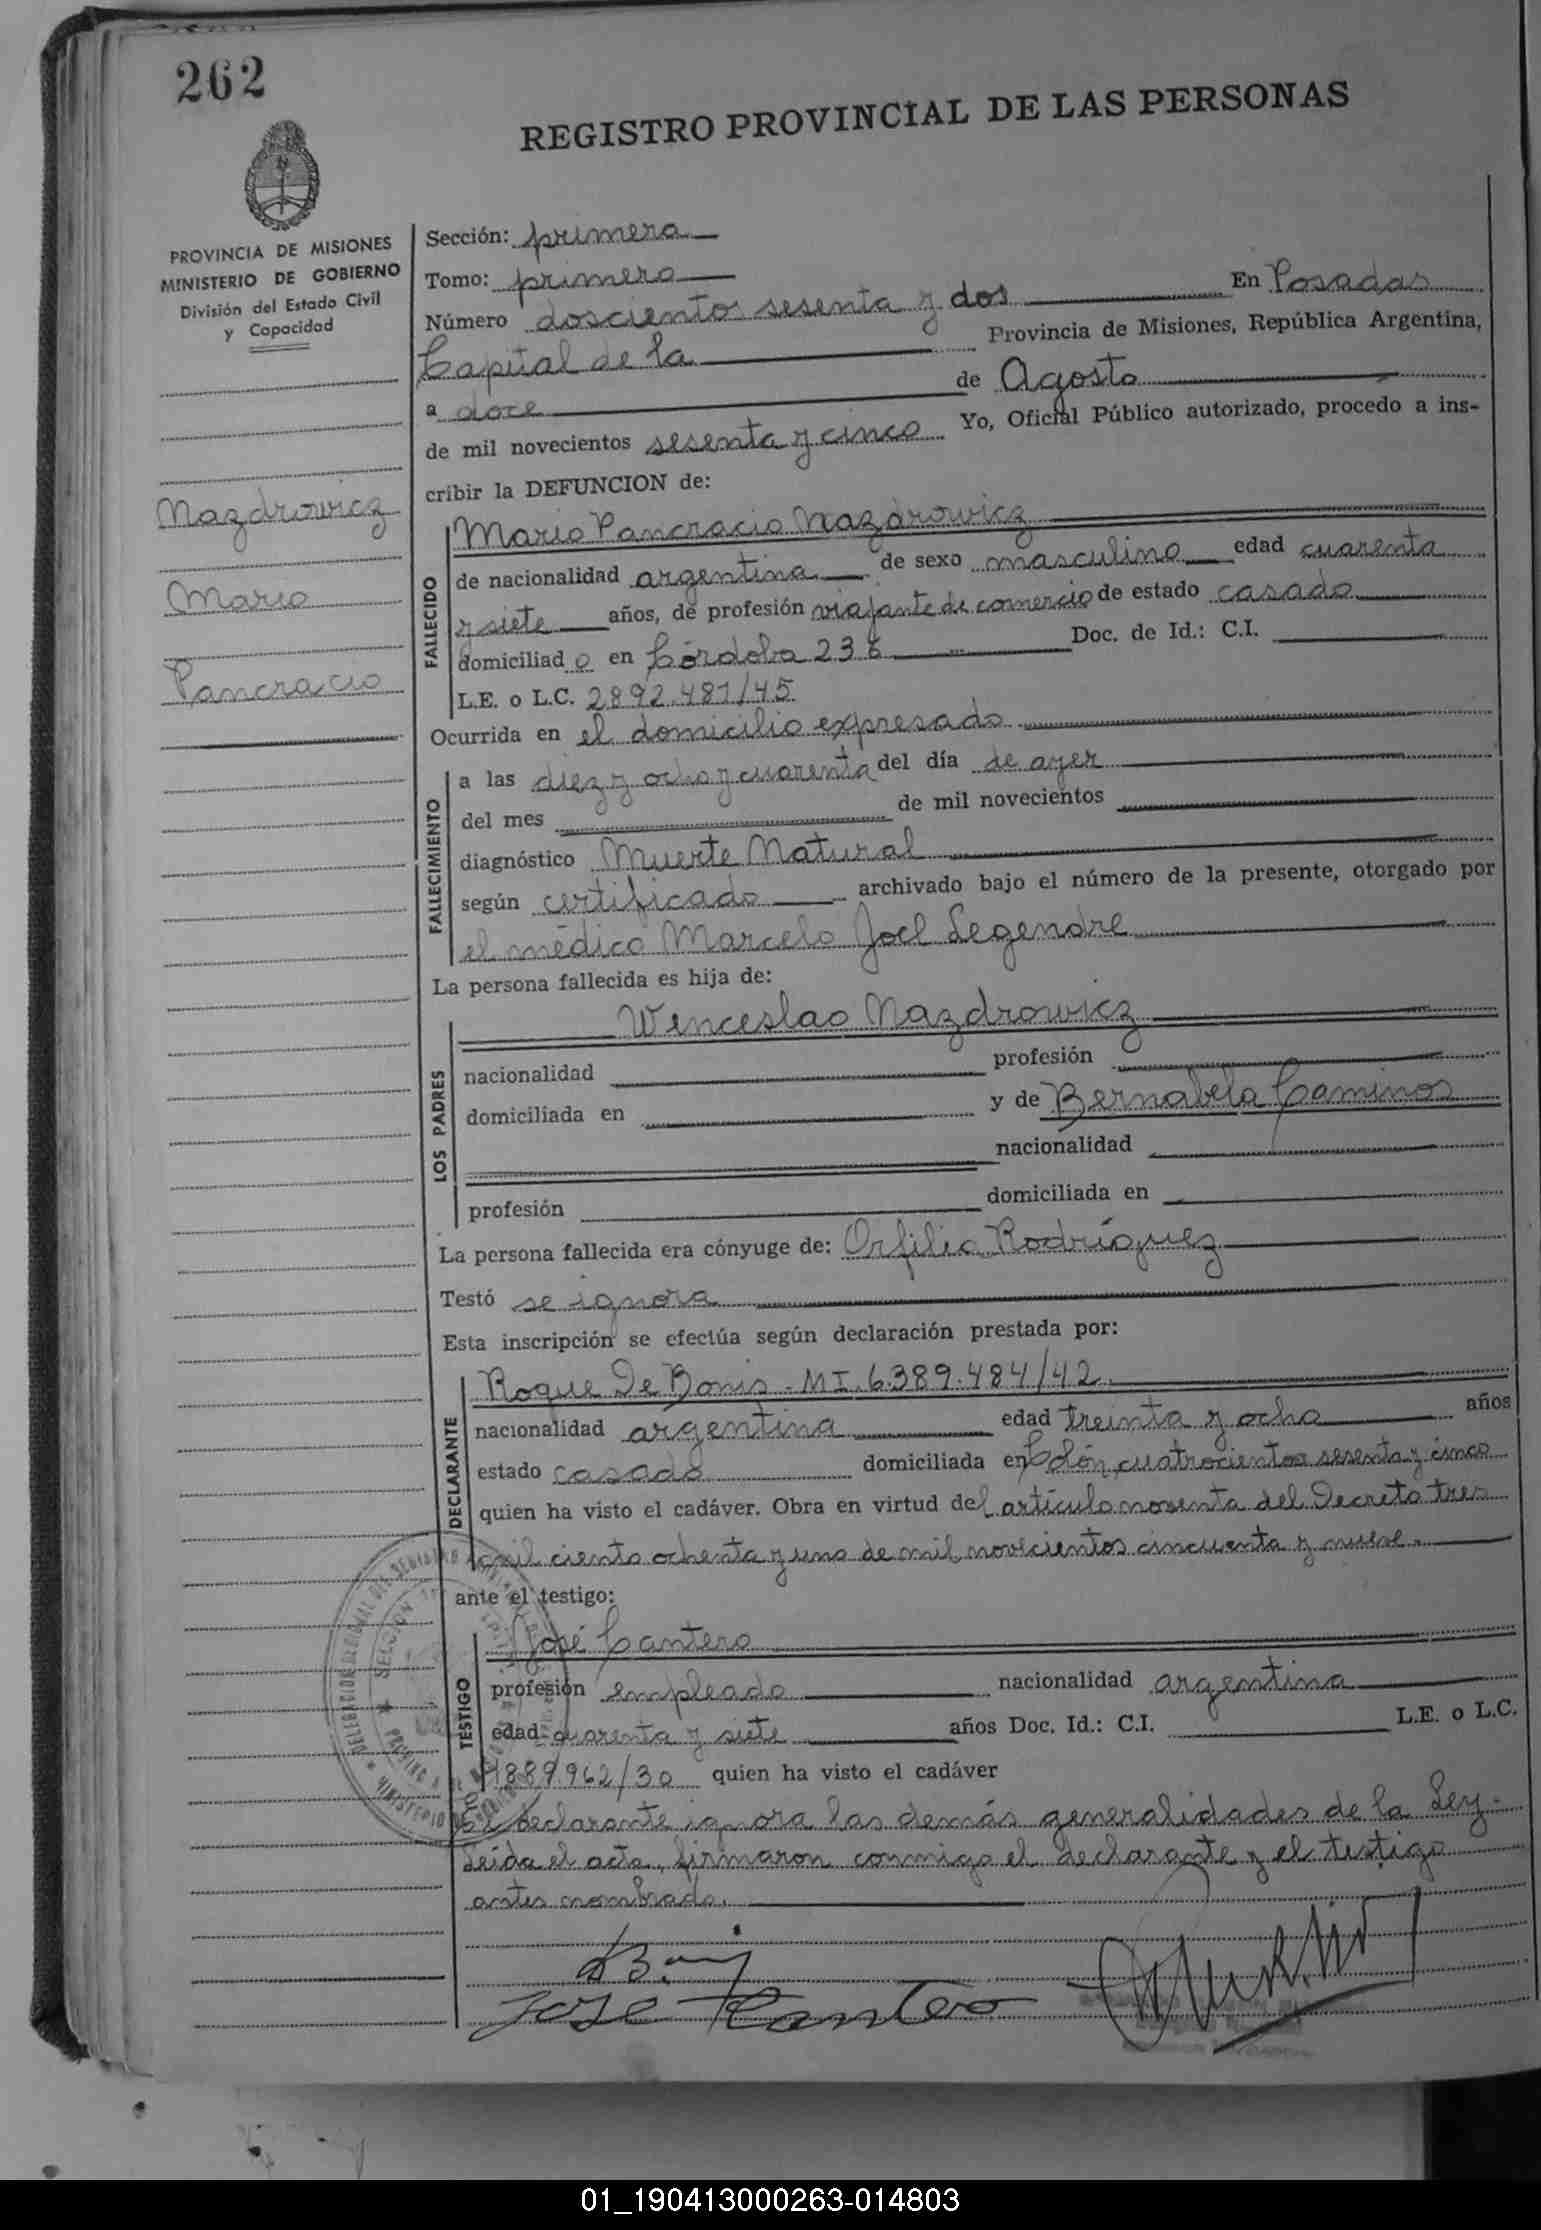 262
REGISTRO PROVINCIAL DE LAS PERSONAS
PROVINCIA DE MISIONES
MINISTERIO DE GOBIERNO
División del Estado Civil
y Capacidad
Nazdrowicz
Mario
Pancracio
Sección: primera
Tomo: primero
Número doscientos sesenta y dos En Posadas
Capital de la Provincia de Misiones, República Argentina,
a doce de Agosto
de mil novecientos sesenta y cinco Yo, Oficial Público autorizado, procedo a ins-
cribir la DEFUNCION de:
FALLECIDO
Mario Pancracio Nazdrowicz
de nacionalidad argentina de sexo masculino edad cuarenta
y siete años, de profesión viajante de comercio de estado casado
domiciliado en Córdoba 236 Doc. de Id.: C.I.
L.E. o L.C. 2892.481/45
Ocurrida en el domicilio expresado
FALLECIMIENTO
a las diez y ocho y cuarenta del día de ayer
del mes de mil novecientos
diagnóstico Muerte Natural
según certificado archivado bajo el número de la presente, otorgado por
el médico Marcelo Joel Legendre
La persona fallecida es hija de:
LOS PADRES
Wenceslao Nazdrowicz
nacionalidad profesión
domiciliada en y de Bernabela Caminos
nacionalidad
profesión domiciliada en
La persona fallecida era cónyuge de: Orfilia Rodríguez
Testó se ignora
Esta inscripción se efectúa según declaración prestada por:
DECLARANTE
Roque De Bonis - MI. 6.389.484/42
nacionalidad argentina edad treinta y ocho años
estado casado domiciliada en Colón cuatrocientos sesenta y cinco
quien ha visto el cadáver. Obra en virtud del artículo noventa del Decreto tres
mil ciento ochenta y uno de mil novecientos cincuenta y nueve.
ante el testigo:
TESTIGO
José Cantero
profesión empleado nacionalidad argentina
edad cuarenta y siete años Doc. Id.: C.I. L.E. o L.C.
1889.962/30 quien ha visto el cadáver
El declarante ignora las demás generalidades de la Ley.
Leída el acta, firmaron conmigo el declarante y el testigo
antes nombrado.
Jose Cantero
01_190413000263-014803